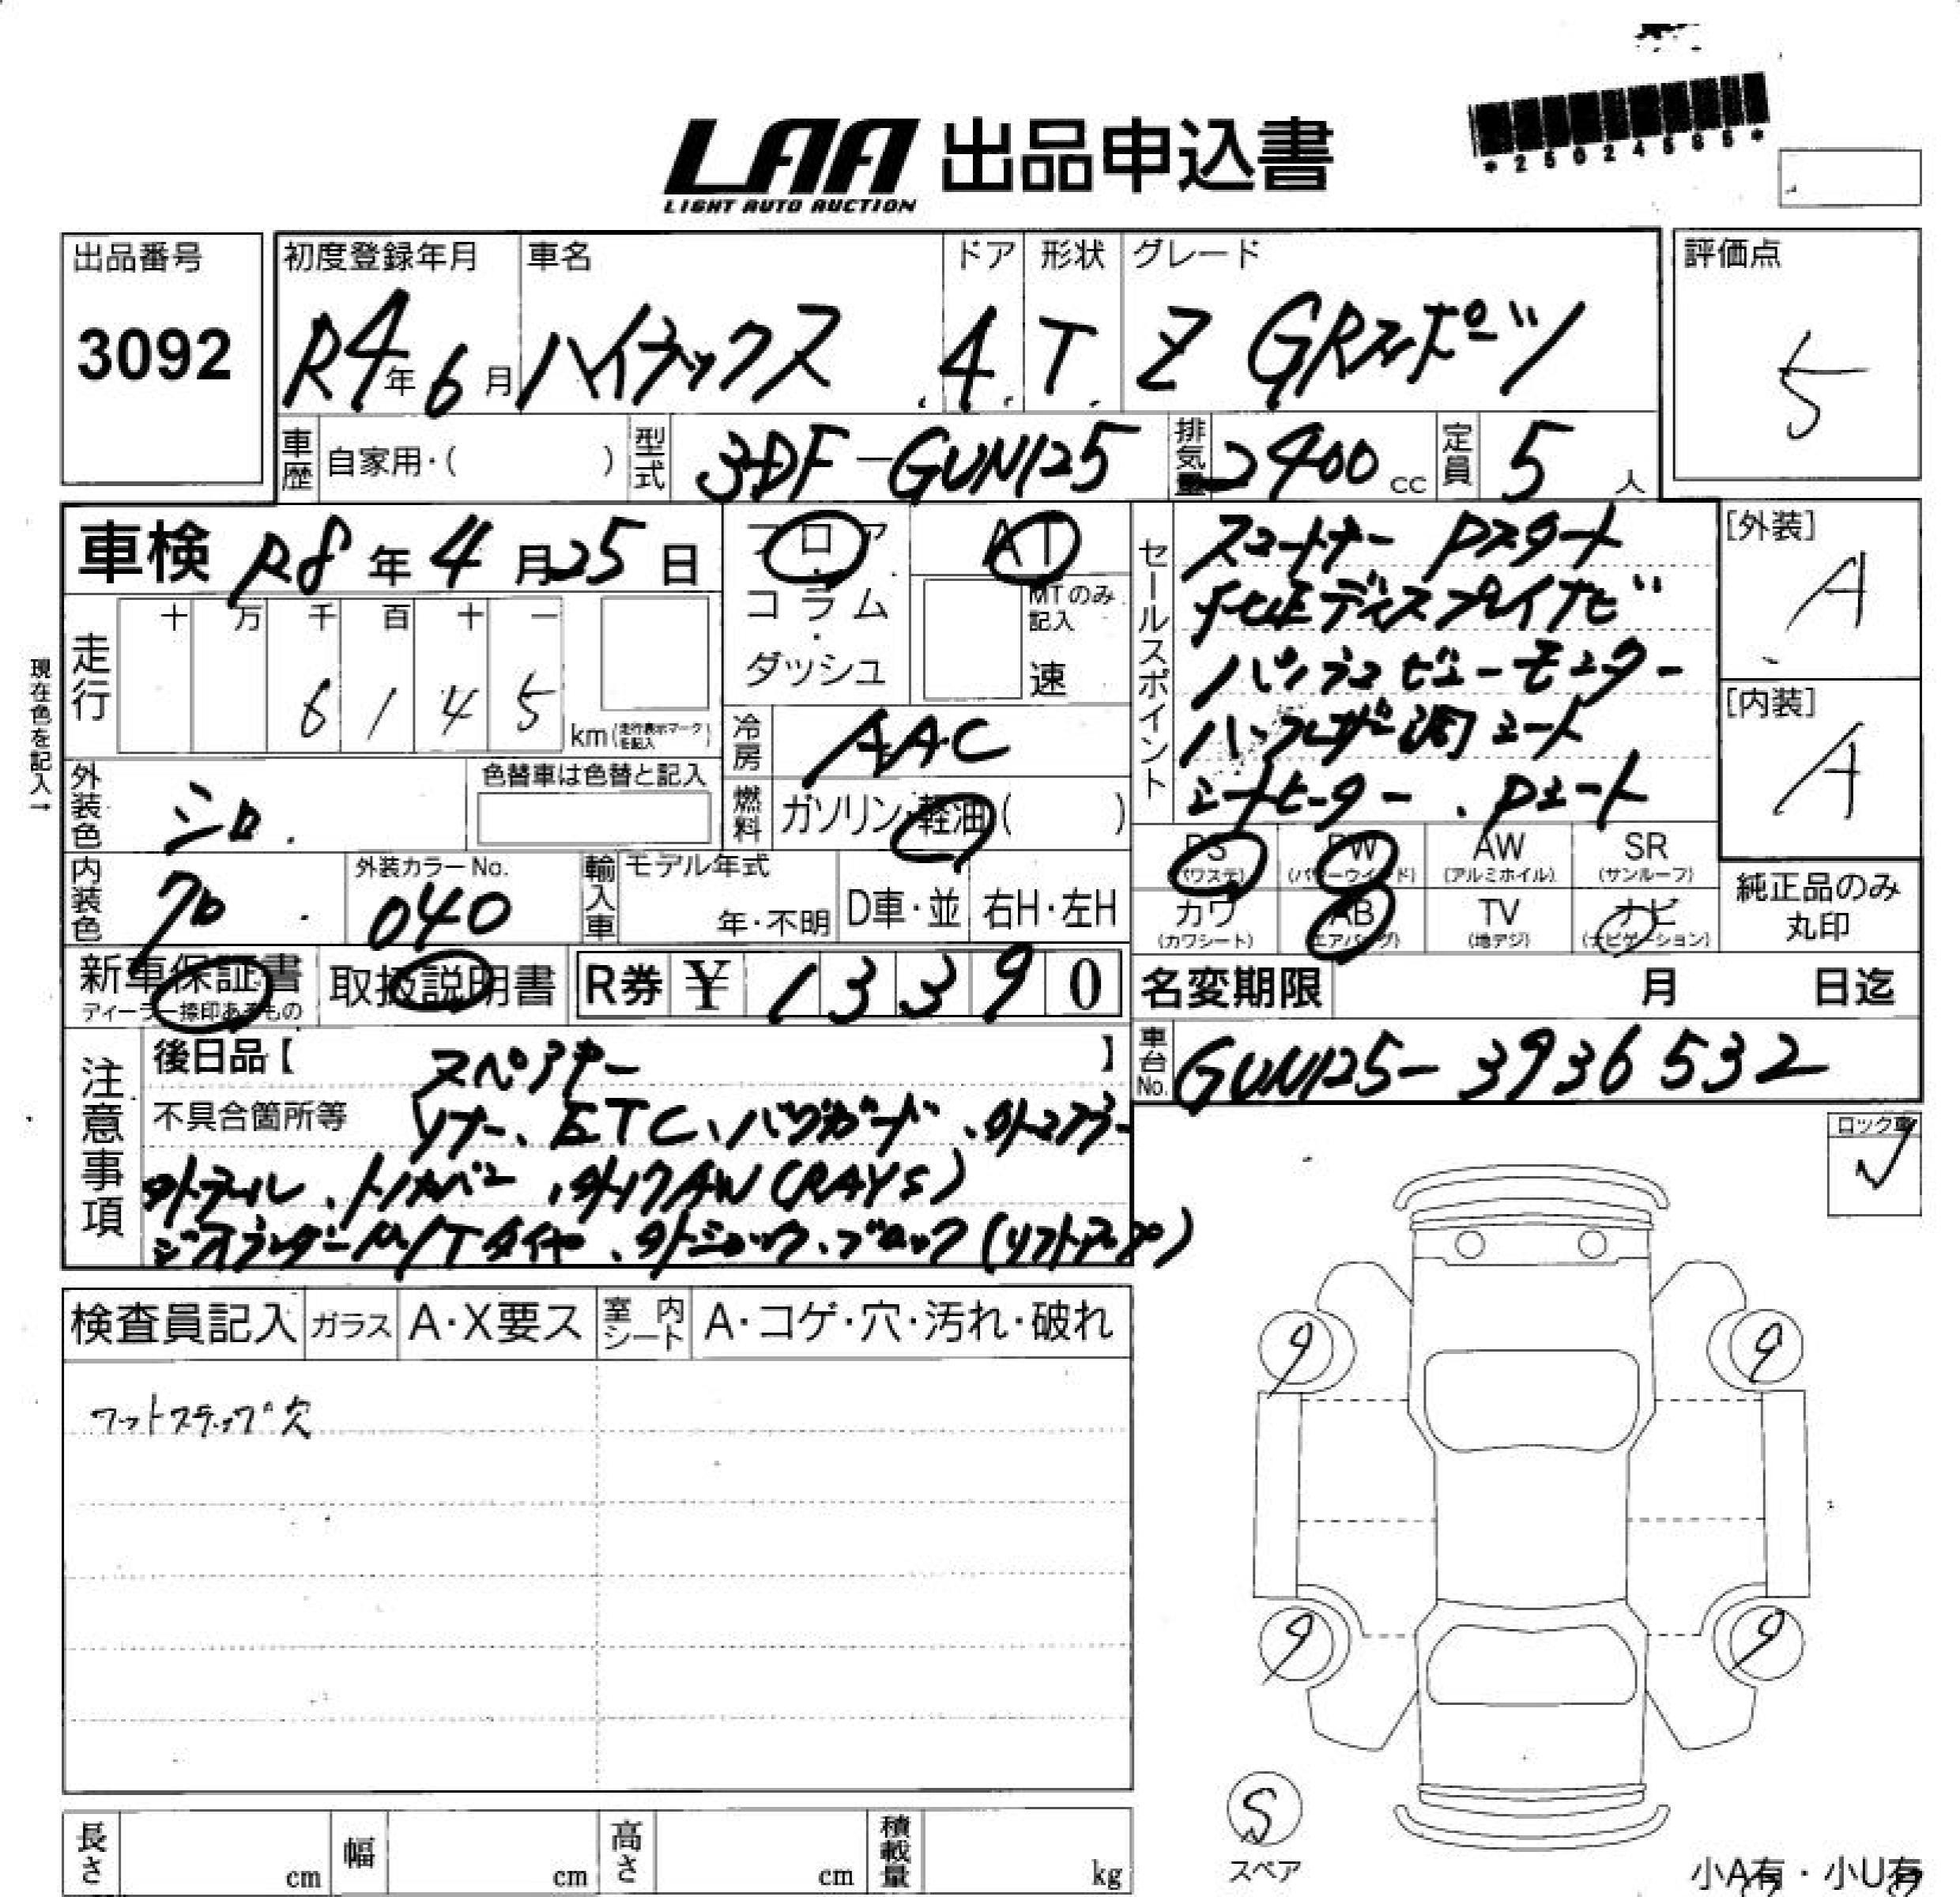 *25024565*
LAA 出品申込書
LIGHT AUTO AUCTION
出品番号
3092
初度登録年月
R4年6月
車名
ハイラックス
ドア
4
形状
T
グレード
Z GRスポーツ
評価点
5
車歴 自家用・( )
型式 3DF-GUN125
排気量 2400cc
定員 5人
車検 R8年4月25日
フロア・コラム・ダッシュ
AT
MTのみ記入
速
セールスポイント
スコーナー Pスタート
ナビ
パノラミックビューモニター
ハーフレザー調シート
シートヒーター、Pシート
[外装]
A
[内装]
A
現在色を記入→
走行
十 万 千 百 十 一
6 1 4 5
km(走行表示マークを記入)
冷房 AAC
燃料 ガソリン・軽油( )
外装色 シロ
色替車は色替と記入
内装色 クロ
外装カラーNo.
040
輸入車 モデル年式
年・不明 D車・並 右H・左H
PS (パワステ)
PW (パワーウインド)
AW (アルミホイル)
SR (サンルーフ)
カワ (カワシート)
AB (エアバッグ)
TV (地デジ)
ナビ (ナビゲーション)
純正品のみ丸印
新車保証書
ディーラー捺印あるもの
取扱説明書
R券 ¥ 13390
名変期限 月 日迄
車台No. GUN125-3936532
注意事項
後日品【 スペアキー 】
不具合箇所等 ソナー、ETC、バグガード、外マフラー
外テール、トノカバー、外17AW(RAYS)
ジオランダーM/Tタイヤ、外ショック、ブロック(リフトアップ)
ロック車
検査員記入 ガラス A・X要ス 室内シート A・コゲ・穴・汚れ・破れ
フットステップ穴
9
9
9
9
S
スペア
長さ cm 幅 cm 高さ cm 積載量 kg
小A有・小U有